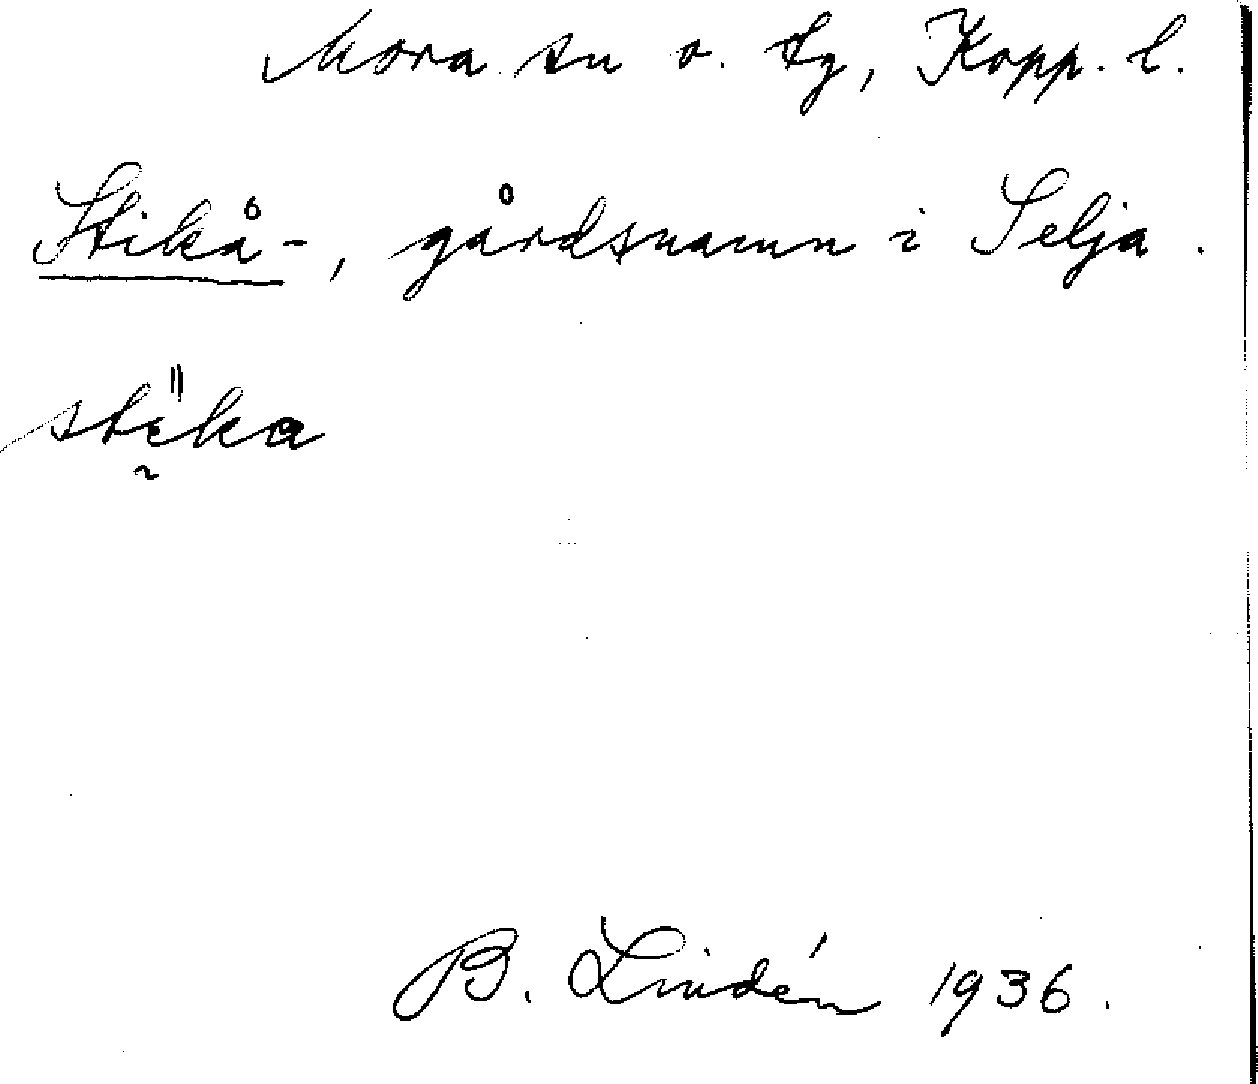 Mora sn o. tg, Kopp. l.
Stikå-, gårdsnamn i Selja.
stika
B. Lindén 1936.